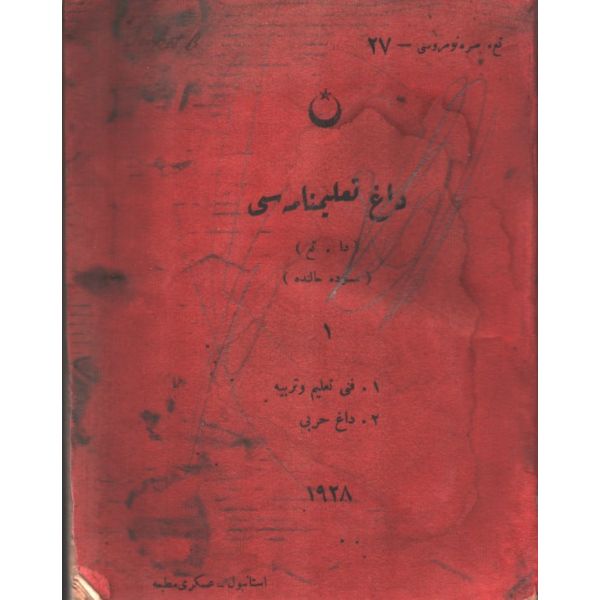 تع. سره نومروسی – ٢٧
داغ تعلیمنامه‌سی
( دا . تع )
( مسوده حالنده )
١
١ . فنی تعلیم و تربیه
٢ . داغ حربی
١٩٢٨
استانبول – عسكری مطبعه